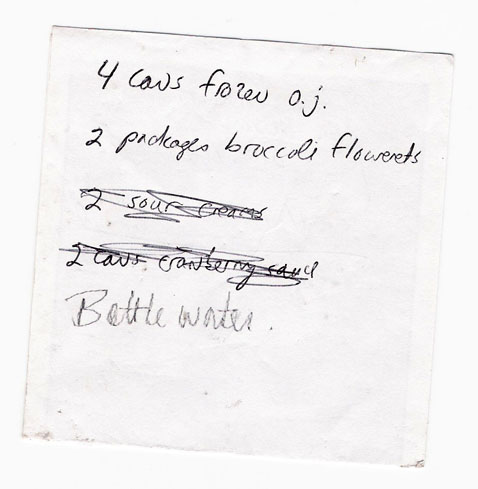 4 cans frozen o.j.
2 packages broccoli flowerets
2 sour creams
2 cans cranberry sauce
Bottle water.